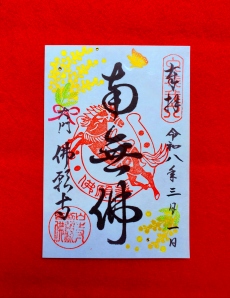 奉拝
令和八年三月一日
南無佛
大門
佛願寺